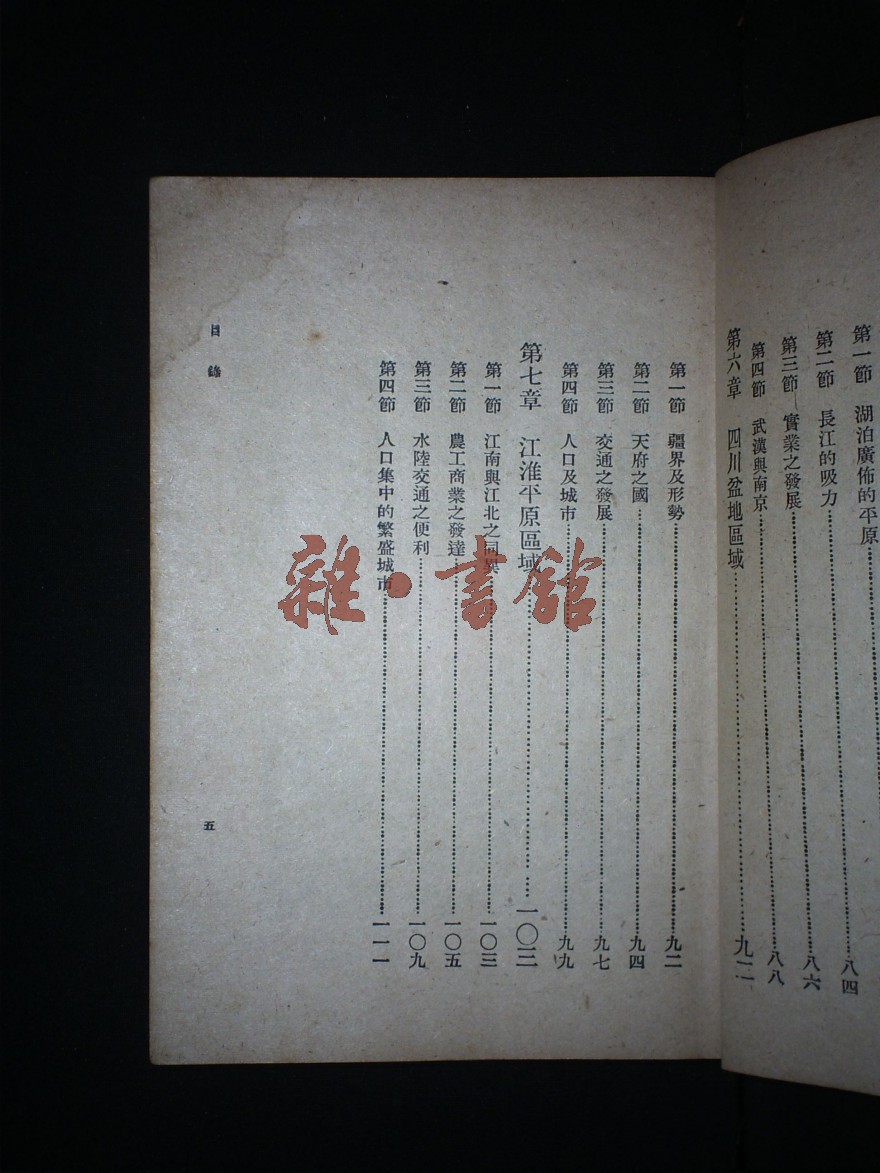 第一節 湖泊廣佈的平原……八四
第二節 長江的吸力……八六
第三節 實業之發展……八八
第四節 武漢與南京……
第六章 四川盆地區域……九二
第一節 疆界及形勢……九二
第二節 天府之國……九四
第三節 交通之發展……九七
第四節 人口及城市……九九
第七章 江淮平原區域……一〇三
第一節 江南與江北之同異……一〇三
第二節 農工商業之發達……一〇五
第三節 水陸交通之便利……一〇九
第四節 人口集中的繁盛城市……一一一
目錄
五
雜·書館